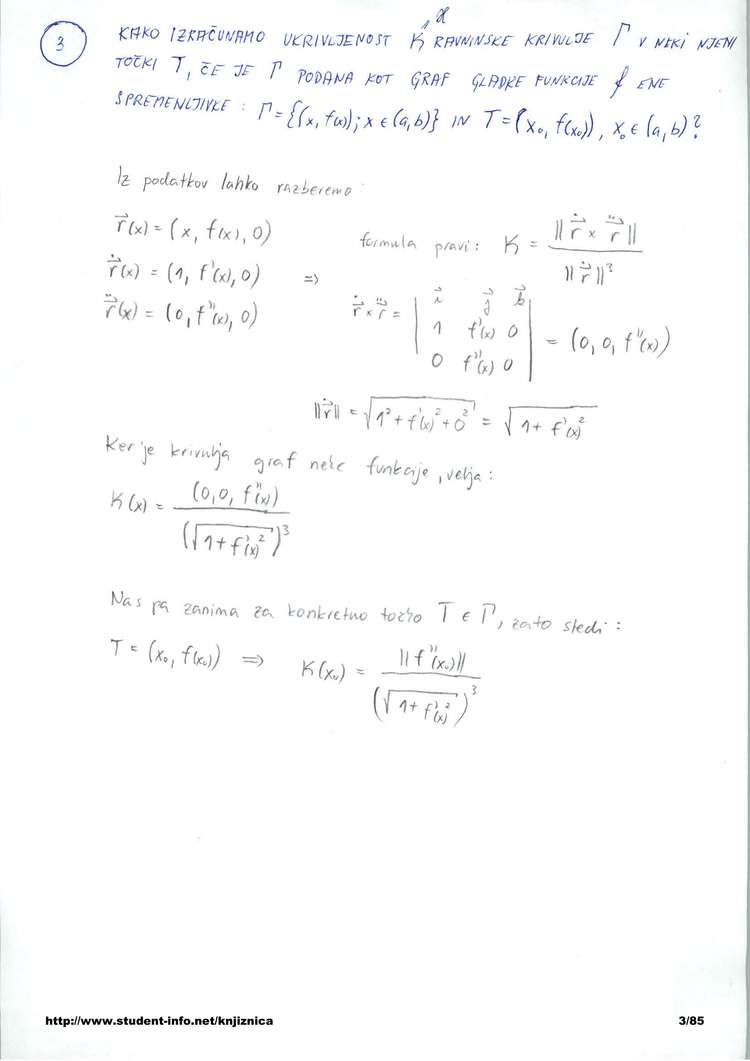 3
KAKO IZRAČUNAMO UKRIVLJENOST K RAVNINSKE KRIVULJE Γ V NEKI NJENI
TOČKI T, ČE JE Γ PODANA KOT GRAF GLADKE FUNKCIJE f ENE
SPREMENLJIVKE : Γ = {(x, f(x)); x ∈ (a,b)} IN T = (x₀, f(x₀)), x₀ ∈ (a,b)?
Iz podatkov lahko razberemo:
r⃗(x) = (x, f(x), 0)
ṙ⃗(x) = (1, f'(x), 0) ⇒
r̈⃗(x) = (0, f''(x), 0)
formula pravi: K = ||ṙ⃗ × r̈⃗|| / ||ṙ⃗||³
ṙ⃗ × r̈⃗ = | i⃗ j⃗ k⃗ | 1 f'(x) 0 | 0 f''(x) 0 | = (0, 0, f''(x))
||ṙ⃗|| = √(1² + f'(x)² + 0²) = √(1 + f'(x)²)
Ker je krivulja graf neke funkcije, velja:
K(x) = (0,0, f''(x)) / (√(1+f'(x)²))³
Nas pa zanima za konkretno točko T ∈ Γ, zato sledi:
T = (x₀, f(x₀)) ⇒ K(x₀) = ||f''(x₀)|| / (√(1+f'(x)²))³
http://www.student-info.net/knjiznica
3/85